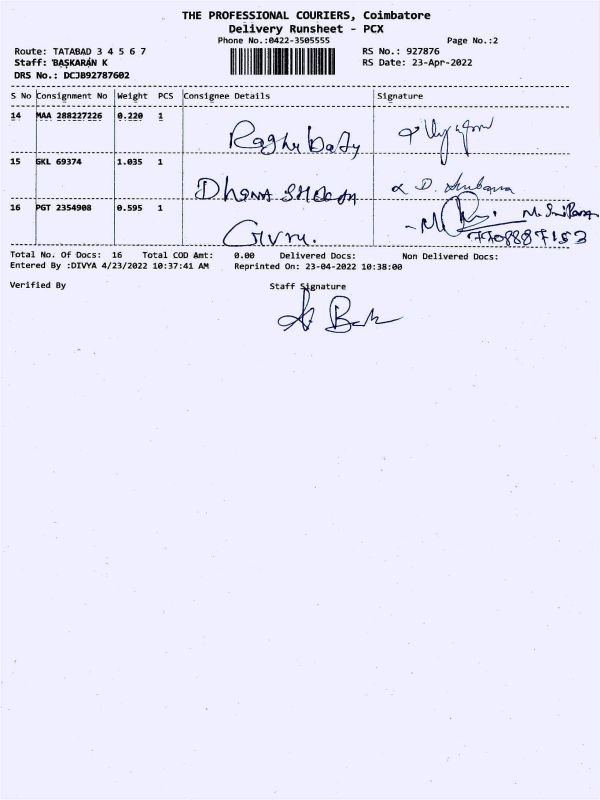 THE PROFESSIONAL COURIERS, Coimbatore
Delivery Runsheet - PCX
Phone No.:0422-3505555 Page No.:2
Route: TATABAD 3 4 5 6 7 RS No.: 927876
Staff: BASKARAN K RS Date: 23-Apr-2022
DRS No.: DCJB92787602
S No Consignment No Weight PCS Consignee Details Signature
14 MAA 288227226 0.220 1
Raghu
15 GKL 69374 1.035 1
D.
16 PGT 2354908 0.595 1
7708887153
Total No. Of Docs: 16 Total COD Amt: 0.00 Delivered Docs: Non Delivered Docs:
Entered By :DIVYA 4/23/2022 10:37:41 AM Reprinted On: 23-04-2022 10:38:00
Verified By Staff Signature